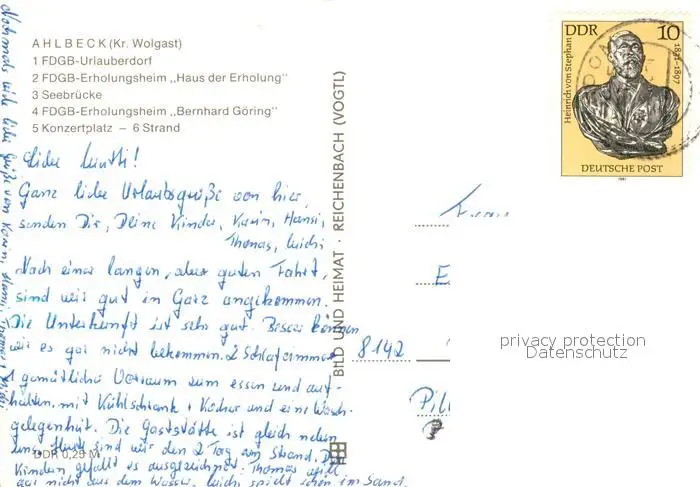 AHLBECK (Kr. Wolgast)
1 FDGB-Urlauberdorf
2 FDGB-Erholungsheim „Haus der Erholung"
3 Seebrücke
4 FDGB-Erholungsheim „Bernhard Göring"
5 Konzertplatz – 6 Strand
DDR 10
Heinrich von Stephan
1831-1897
DEUTSCHE POST
1981
BILD UND HEIMAT · REICHENBACH (VOGTL)
Liebe
Ganz liebe Urlaubsgrüße von hier,
senden Dir, Deine Kinder, Karin, Hansi,
Thomas,
Nach einer langen, aber guten Fahrt,
sind wir gut in Garz angekommen.
Die Unterkunft ist sehr gut. Besser können
wir es gar nicht bekommen. 2 Schlafzimmer
1 gemütlicher Vorraum zum essen und auf-
halten, mit Kühlschrank + Kocher und eine Wasch-
gelegenheit. Die Gaststätte ist gleich neben
uns. Heute sind wir den 2 Tag am Strand. Den
Kindern gefällt es ausgezeichnet. Thomas will
gar nicht aus dem Wasser, spielt schön im Sand.
DDR 0,25 M
8142
privacy protection
Datenschutz